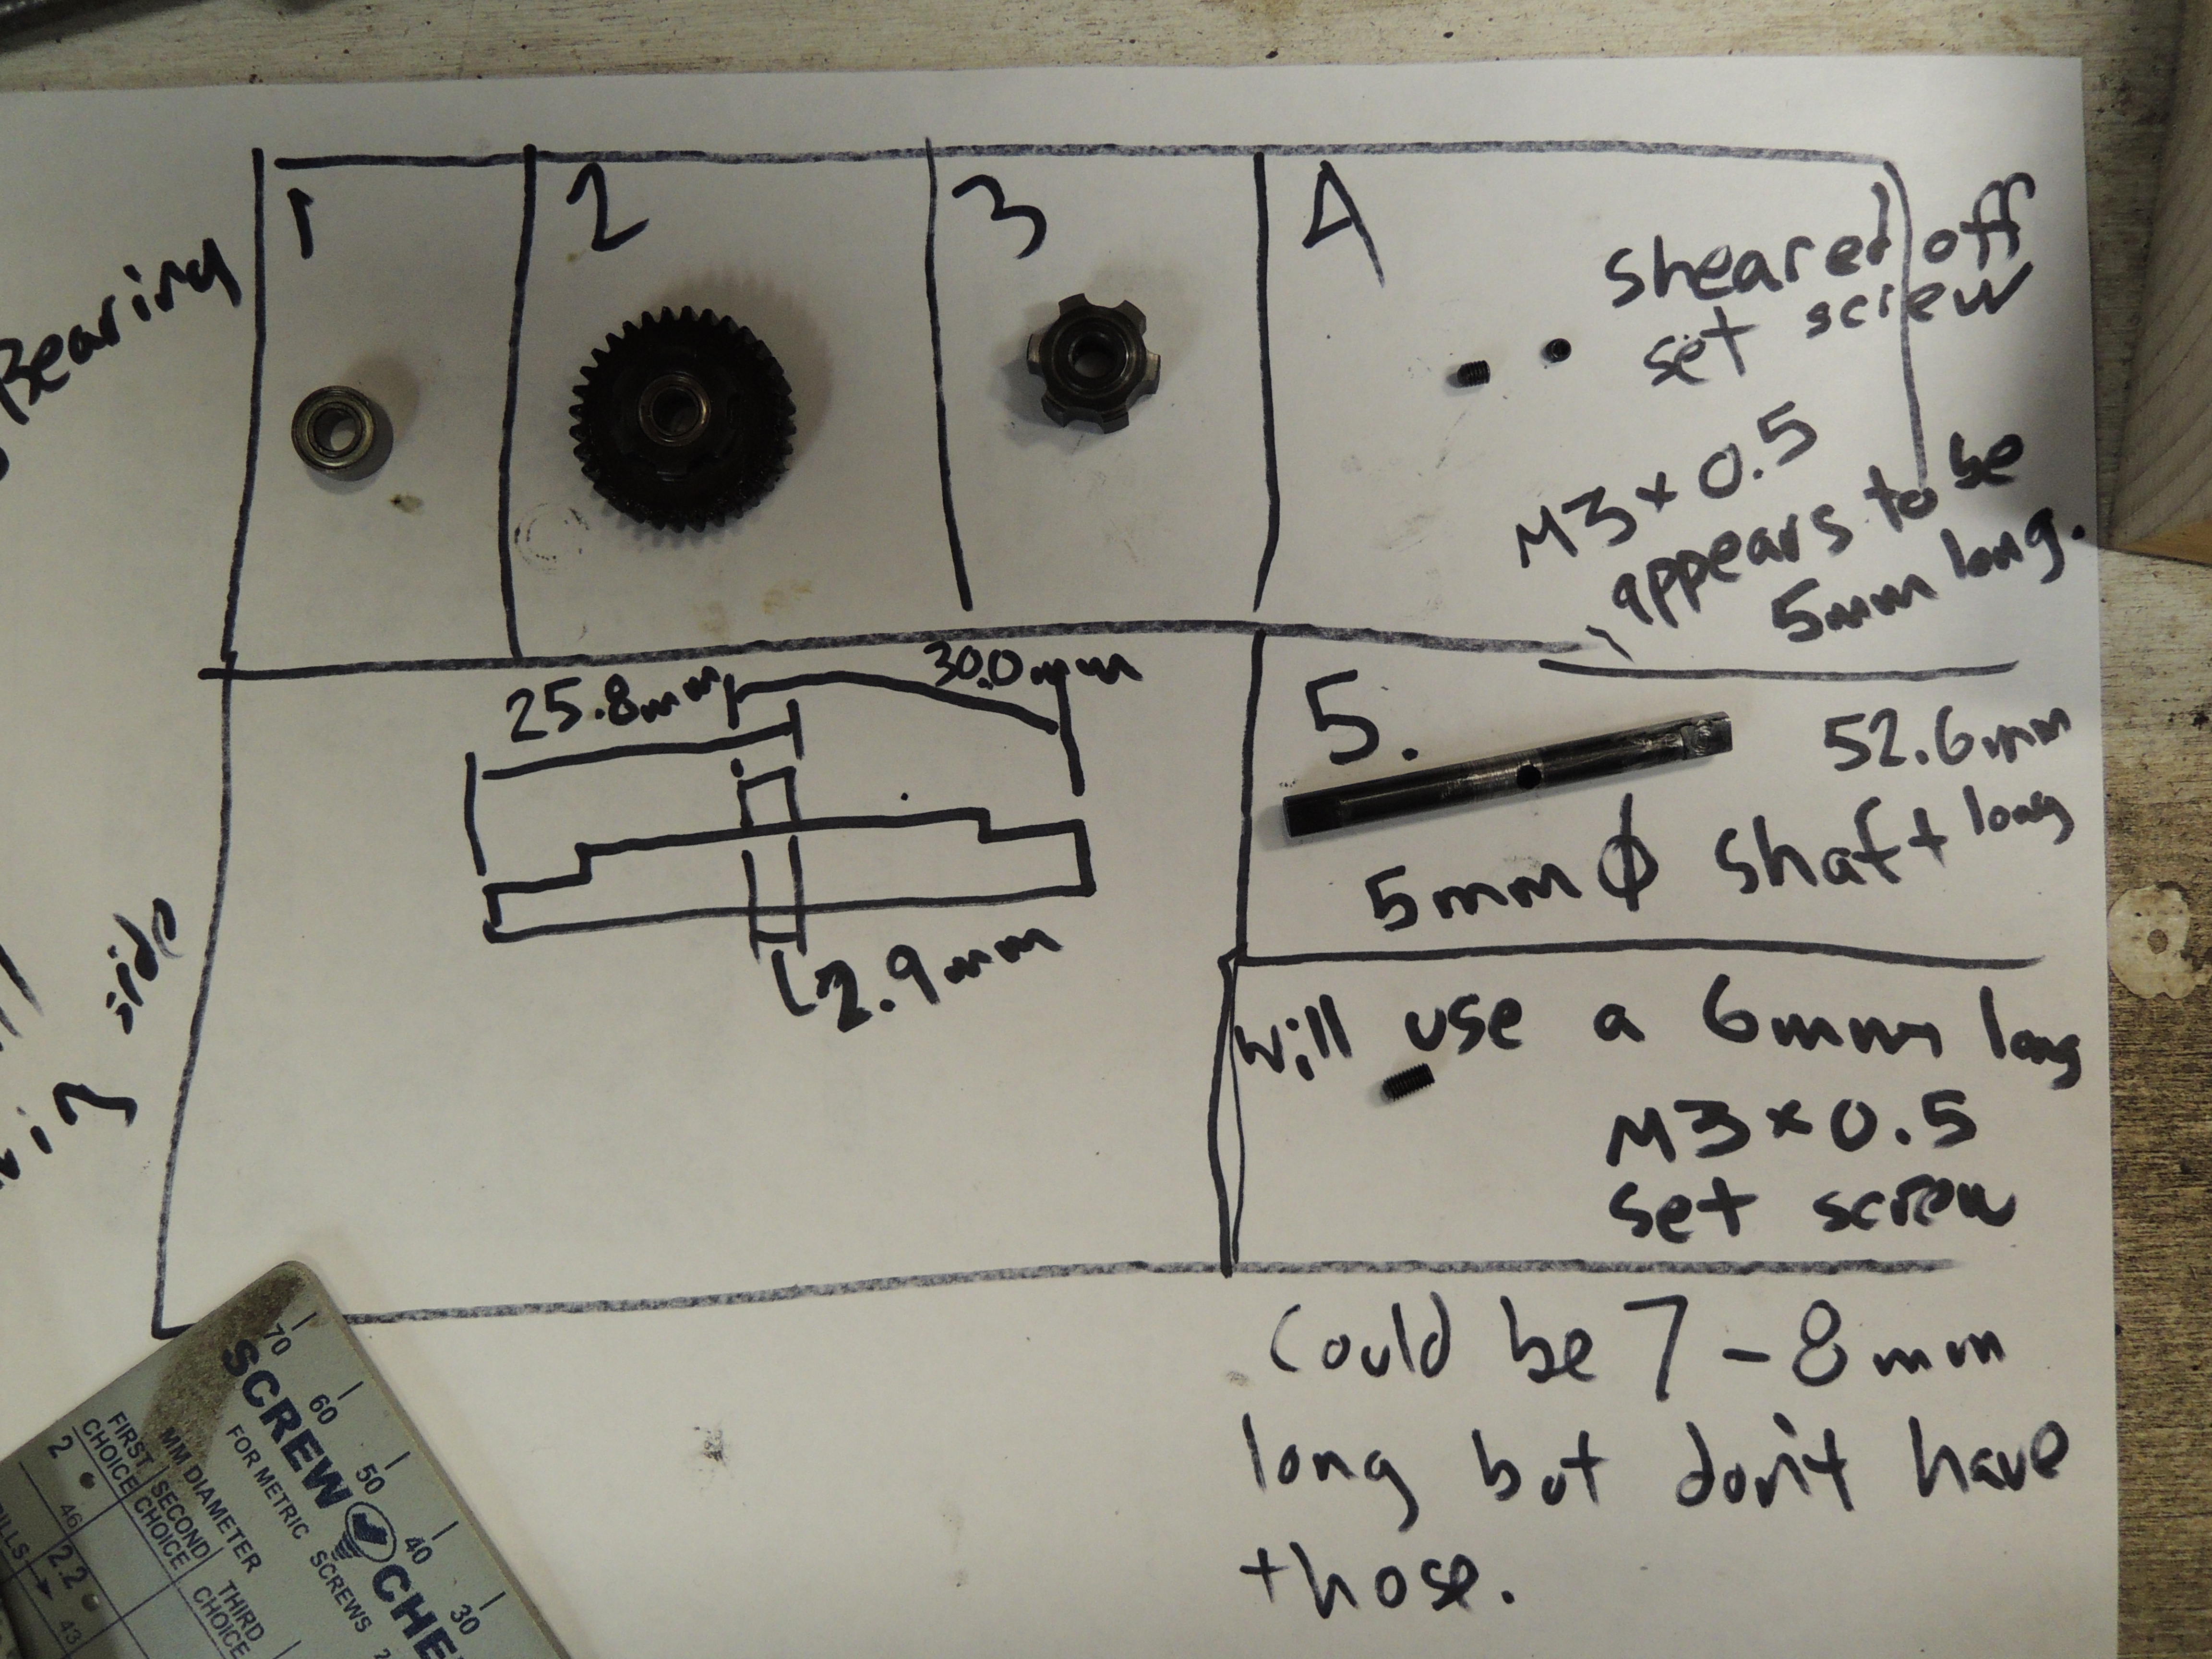 Bearing
1
2
3
4
sheared off
set screw
M3 x 0.5
appears to be
5mm long.
25.8mm
30.0mm
2.9mm
side
5.
52.6mm
long
5mm ϕ shaft
Will use a 6mm long
M3 x 0.5
set screw
Could be 7-8mm
long but don't have
those.
70
60
50
40
30
SCREW CHE
FOR METRIC SCREWS
MM DIAMETER
FIRST CHOICE
SECOND CHOICE
THIRD CHOICE
2
46
2.2
43